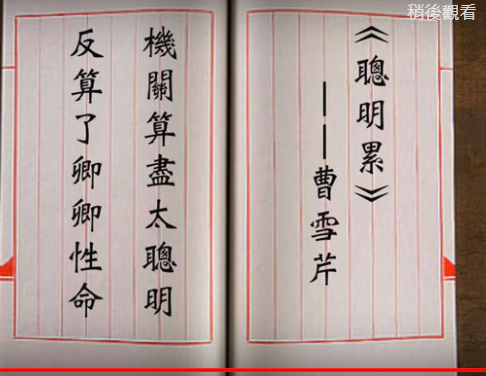 稍後觀看
《聰明累》
——曹雪芹
機關算盡太聰明
反算了卿卿性命